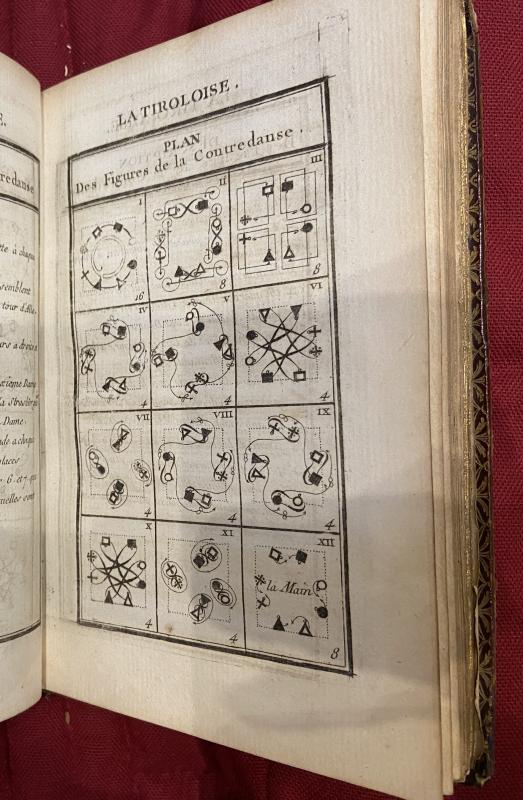 E.
redanse
tte à chaque
semblent
tour d'Alle
urs a droite a
xieme Dame
la Strasbour
Dame.
de a chaque
places
r 6. et 7. qui
uelles sont
LA TIROLOISE.
PLAN
Des Figures de la Contredanse.
I
16
II
8
III
8
IV
4
V
4
VI
4
VII
4
VIII
4
IX
4
X
4
XI
4
XII
la Main
8